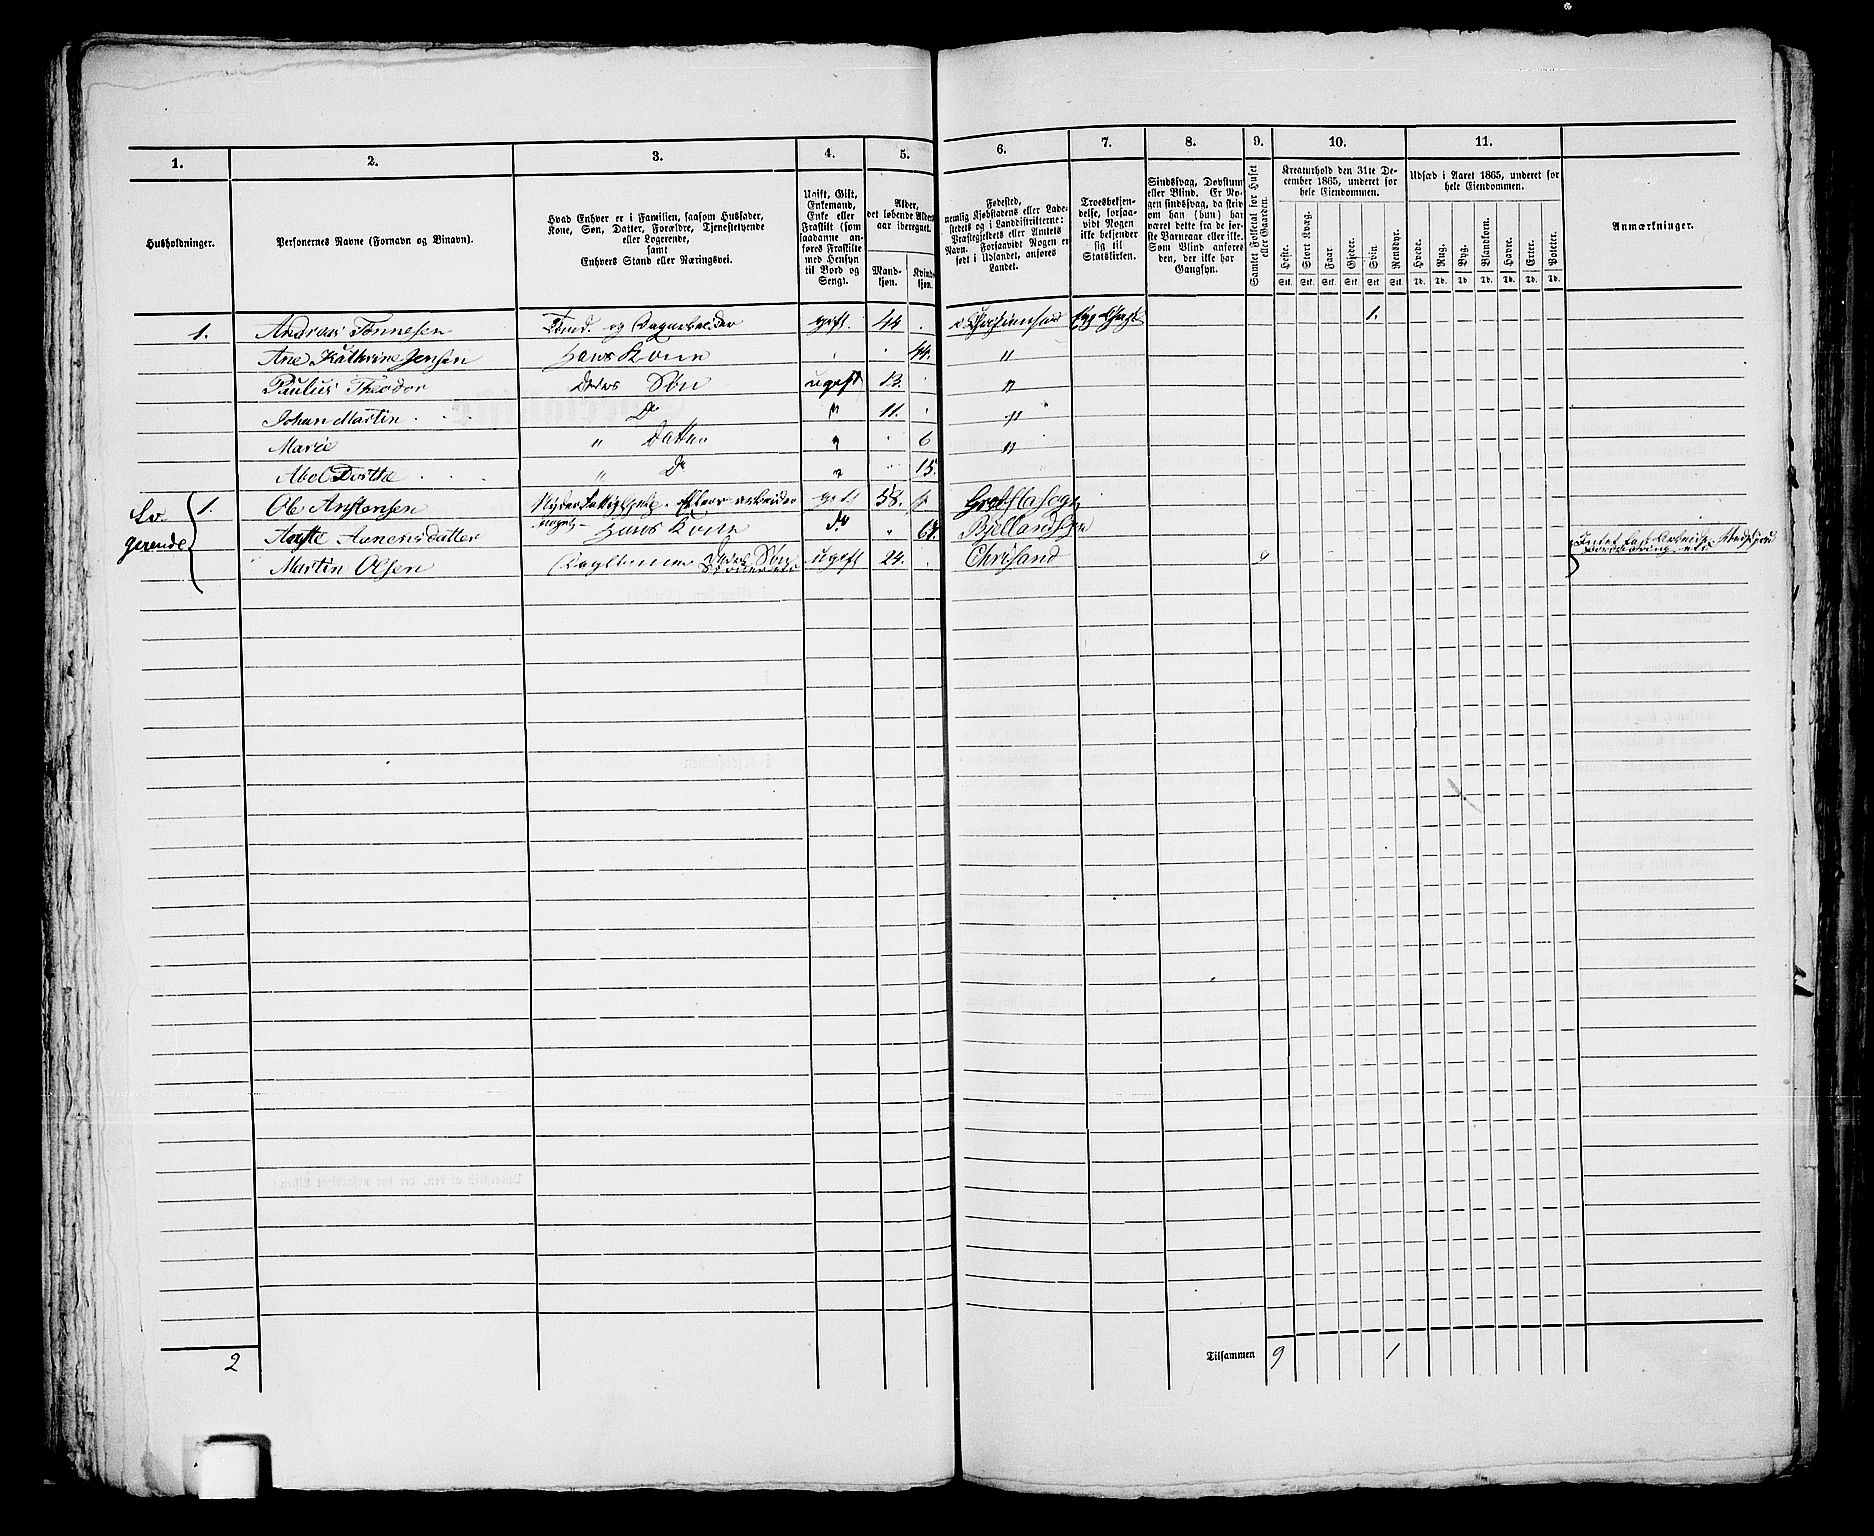 1. 2. 3. 4. 5. 6. 7. 8. 9. 10. 11.
Husholdninger.
Personernes Navne (Fornavn og Binavn).
Hvad Enhver er i Familien, saasom Husfader,
Kone, Søn, Datter, Forældre, Tjenestetyende
eller Logerende,
samt
Enhvers Stand eller Næringsvei.
Ugift, Gift,
Enkemand,
Enke eller
Fraskilt (som
saadanne an-
føres Fraskilte
med Hensyn
til Bord og
Seng).
Alder,
det løbende Alders-
aar iberegnet.
Mand-
kjøn.
Kvind-
kjøn.
Fødested,
nemlig Kjøbstadens eller Lade-
stedets og i Landdistrikterne:
Præstegjeldets eller Amtets
Navn. Forsaavidt Nogen er
født i Udlandet, anføres
Landet.
Troesbekjen-
delse, forsaa-
vidt Nogen
ikke bekjender
sig til
Statskirken.
Sindssvag, Døvstum
eller Blind. Er No-
gen sindssvag, da skriv
om han (hun) har
været dette fra de før-
ste Barneaar eller ikke.
Som Blind ansees
den, der ikke har
Gangsyn.
Samlet Folketal for Huset
eller Gaarden.
Kreaturhold den 31te De-
cember 1865, underet for
hele Eiendommen.
Heste. Stort Kvæg. Faar. Gjeder. Svin. Rensdyr.
Stk. Stk. Stk. Stk. Stk. Stk.
Udsæd i Aaret 1865, underet for
hele Eiendommen.
Hvede. Rug. Byg. Blandkorn. Havre. Erter. Poteter.
Td. Td. Td. Td. Td. Td. Td.
Anmærkninger.
1. Andreas Tønnesen og gift. 44 1.
Ane Kathrine Jensen Hans Kone 44. "
Paulus Theodor Deres Søn ugift 13. "
Johan Martin Do " 11. "
Marie " Datter " 6 "
Abel Dorthe " Do " 15.
Lo-
gerende
1. Ole Anstensen arbeider gift 58.
Hans Kone do Bjellands
Martin Olsen Deres Søn ugift 24. Chrisand 9
2 Tilsammen 9 1